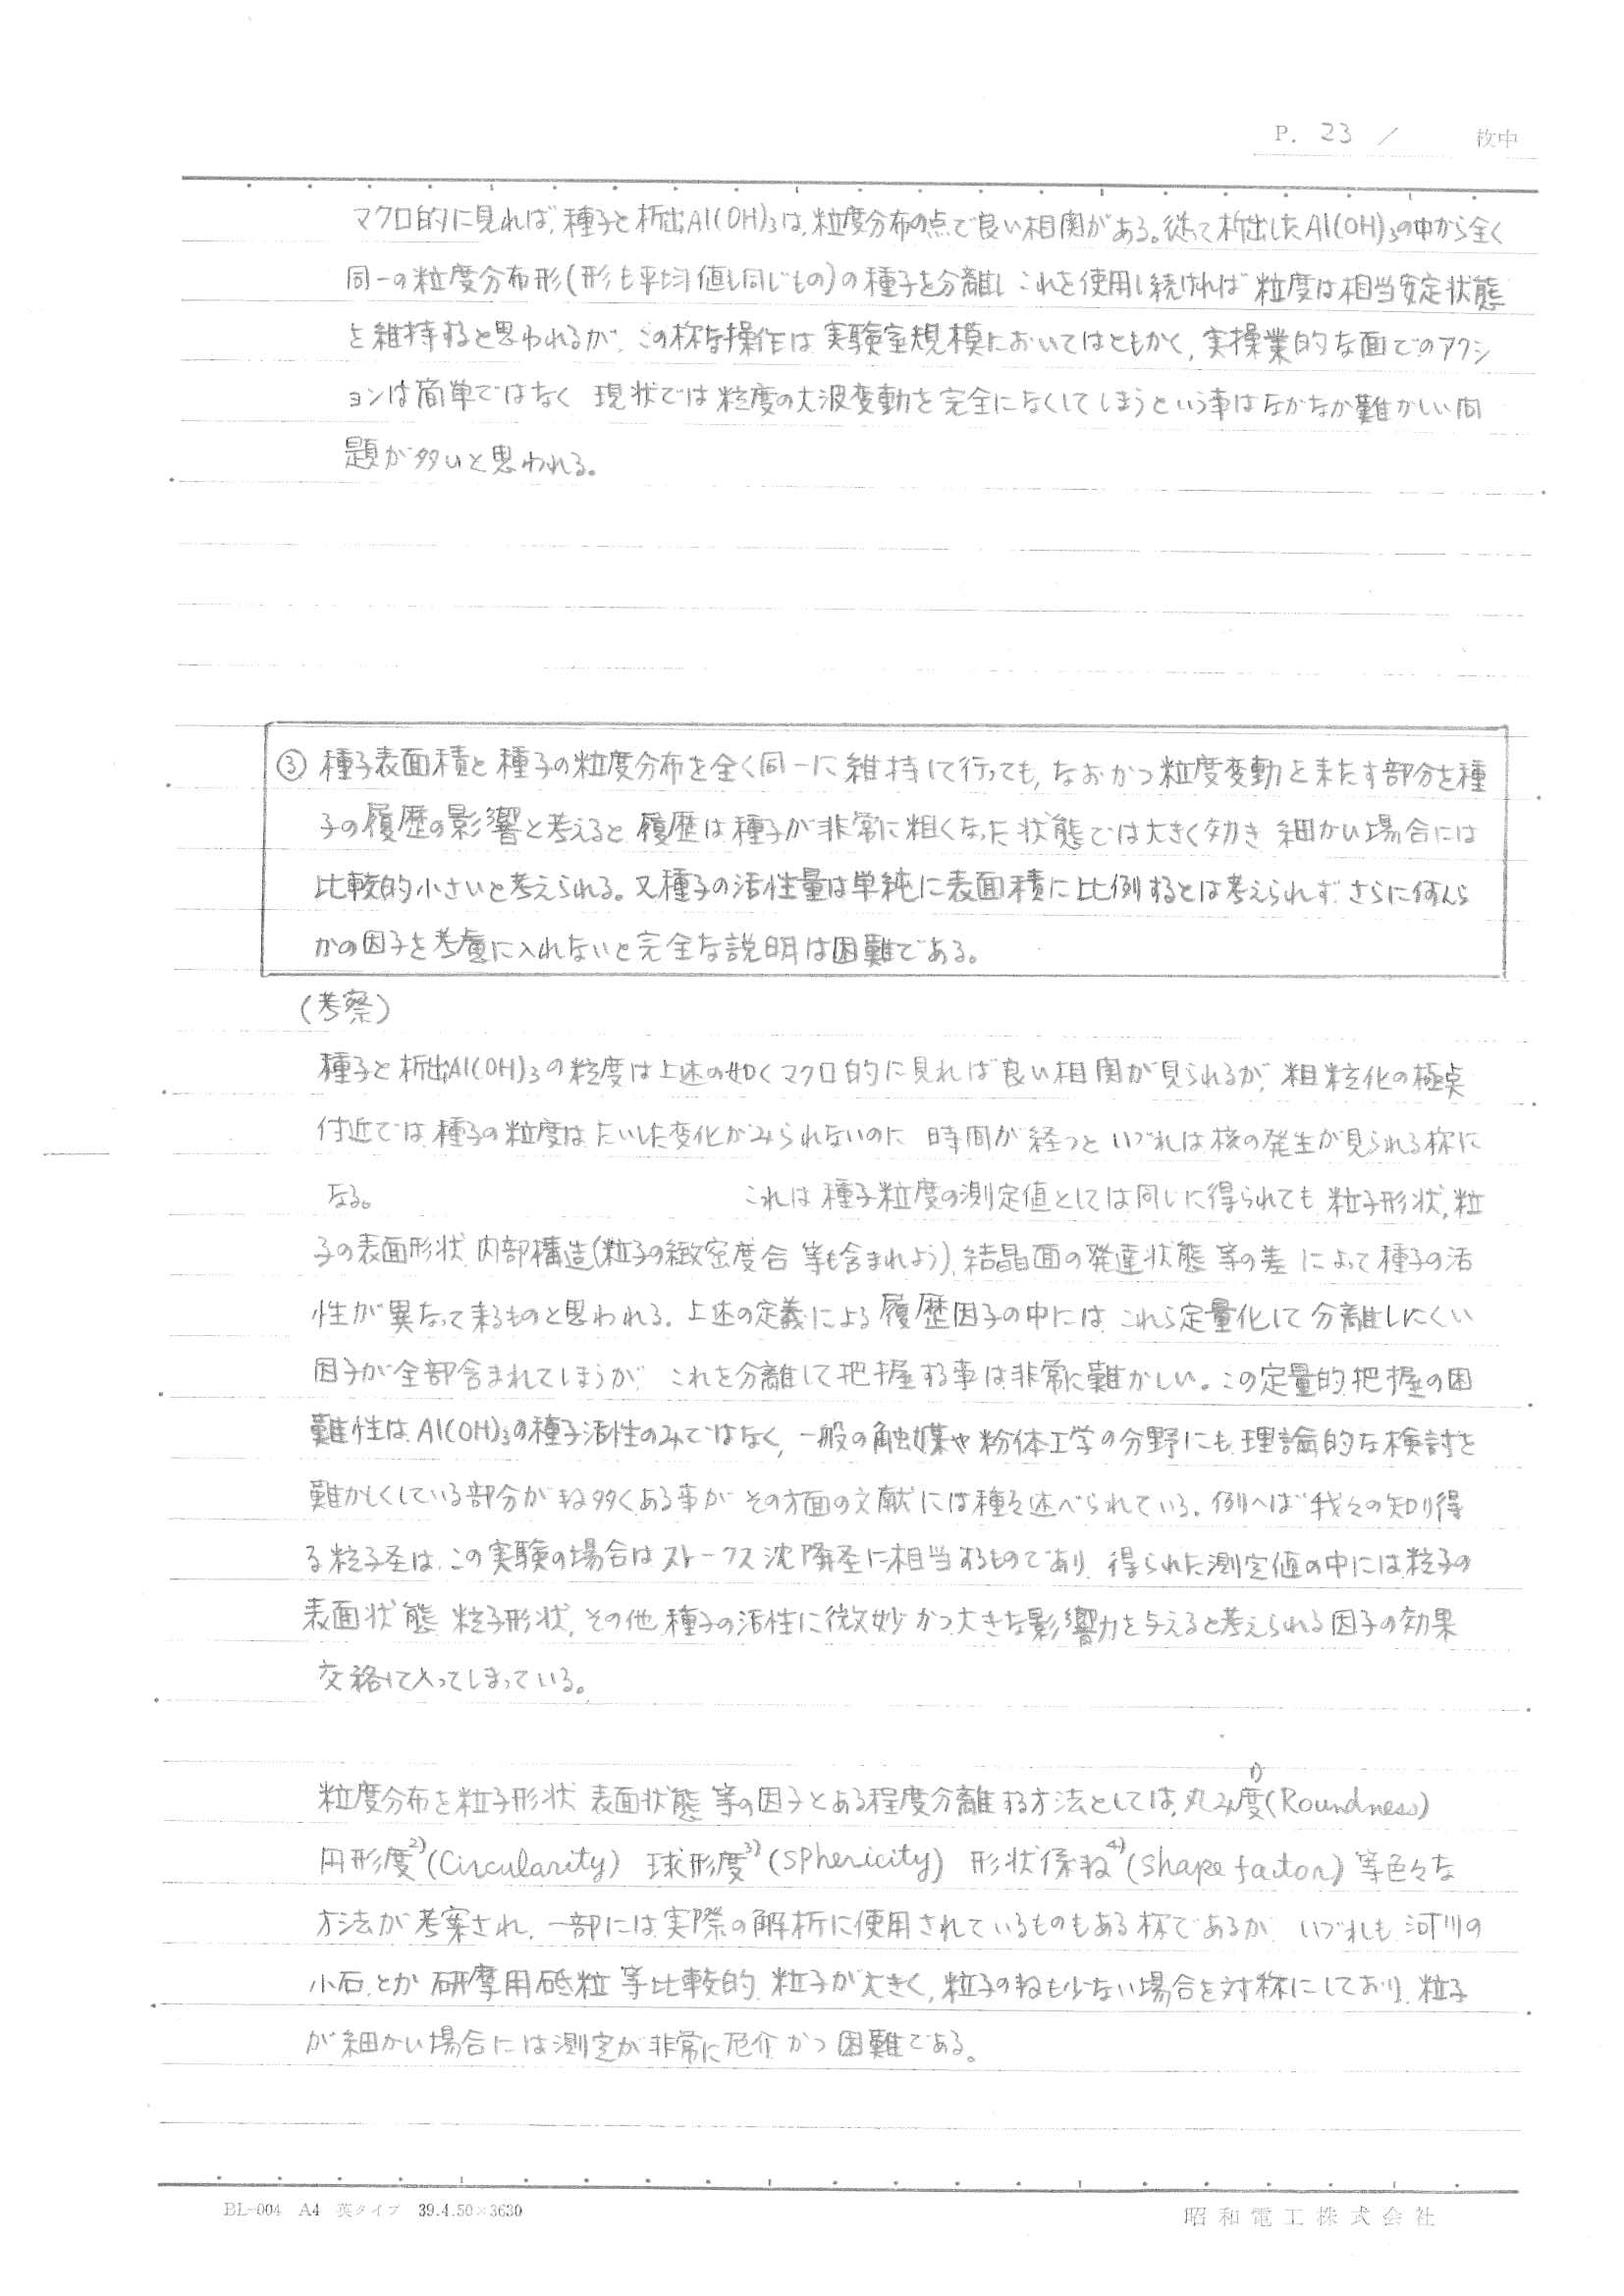 P. 23 / 枚中
マクロ的に見れば、種子と析出Al(OH)3は、粒度分布の点で良い相関がある。従って析出したAl(OH)3の中から全く
同一の粒度分布形(形も平均値も同じもの)の種子を分離し これを使用し続ければ 粒度は相当安定状態
を維持すると思われるが、この様な操作は 実験室規模においてはともかく、実操業的な面でのアクシ
ョンは簡単ではなく 現状では粒度の大波変動を完全になくしてしまうという事はなかなか難かしい問
題が多いと思われる。
③ 種子表面積と種子の粒度分布を全く同一に維持して行っても、なおかつ粒度変動を来たす部分を種
子の履歴の影響と考えると 履歴は種子が非常に粗くなった状態では大きく効き 細かい場合には
比較的小さいと考えられる。又種子の活性量は単純に表面積に比例するとは考えられず、さらに何んら
かの因子を考慮に入れないと完全な説明は困難である。
(考察)
種子と析出Al(OH)3の粒度は上述の如くマクロ的に見れば良い相関が見られるが、粗粒化の極点
付近では種子の粒度はたいした変化がみられないのに 時間が経つと いづれは核の発生が見られる様に
なる。 これは種子粒度の測定値としては同じに得られても 粒子形状、粒
子の表面形状 内部構造(粒子の緻密度合 等も含まれよう)、結晶面の発達状態 等の差 によって種子の活
性が異なって来るものと思われる。上述の定義による履歴因子の中には、これら定量化して分離しにくい
因子が全部含まれてしまうが、これを分離して把握する事は非常に難かしい。この定量的把握の困
難性は、Al(OH)3の種子活性のみではなく、一般の触媒や粉体工学の分野にも理論的な検討を
難かしくしている部分が数多くある事が その方面の文献には種々述べられている。例へば 我々の知り得
る粒子径は、この実験の場合はストークス沈降径に相当するものであり、得られた測定値の中には粒子の
表面状態 粒子形状、その他種子の活性に微妙かつ大きな影響力を与えると考えられる因子の効果
交絡して入ってしまっている。
粒度分布を粒子形状 表面状態 等の因子とある程度分離する方法としては、丸み度1)(Roundness)
円形度2)(Circularity) 球形度3)(Sphericity) 形状係数4)(Shape factor) 等色々な
方法が考案され、一部には実際の解析に使用されているものもある様であるが いづれも、河川の
小石とか 研摩用砥粒 等比較的 粒子が大きく、粒子の数も少ない場合を対称にしており、粒子
が細かい場合には測定が非常に厄介かつ困難である。
BL-004 A4 英タイプ 39.4.50×3630 昭和電工株式会社